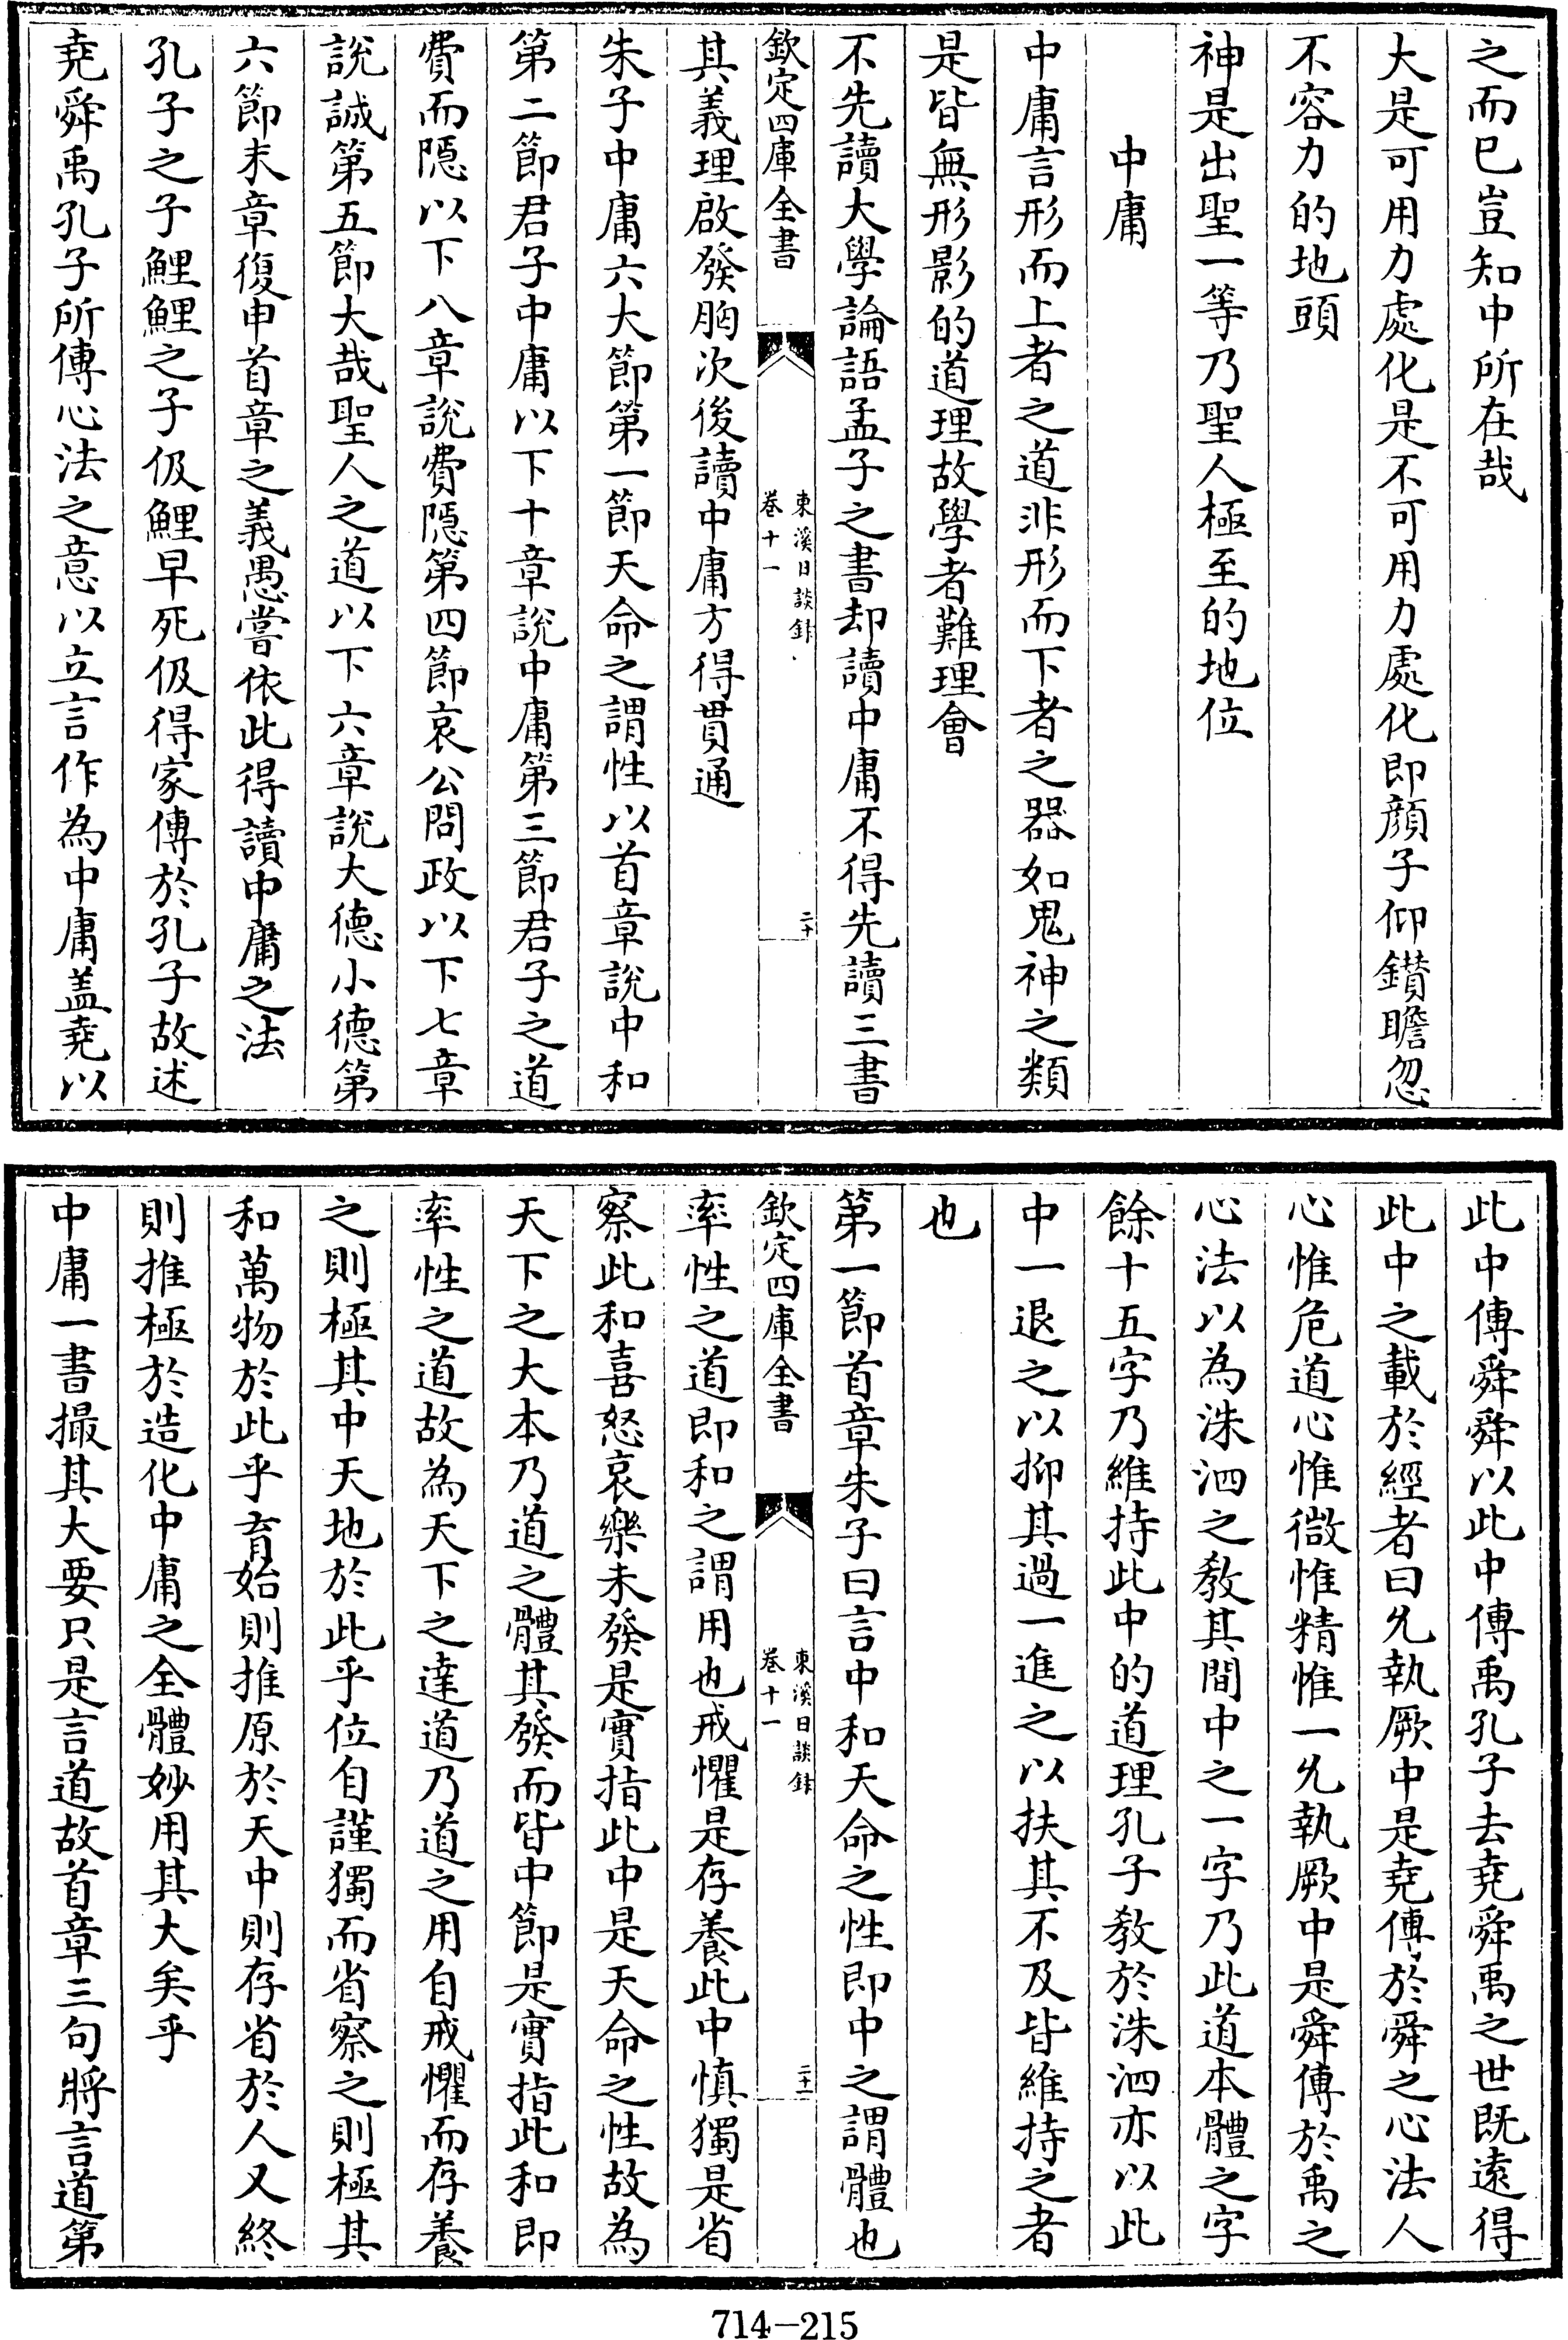 之而已豈知中所在哉
大是可用力處化是不可用力處化即顔子仰鑚瞻忽
不容力的地頭
神是出聖一等乃聖人極至的地位
中庸
中庸言形而上者之道非形而下者之器如鬼神之類
是皆無形影的道理故學者難理會
不先讀大學論語孟子之書却讀中庸不得先讀三書
欽定四庫全書
東溪日談録
卷十一
二十
其義理啟發胸次後讀中庸方得貫通
朱子中庸六大節第一節天命之謂性以首章説中和
第二節君子中庸以下十章説中庸第三節君子之道
費而隠以下八章説費隠第四節哀公問政以下七章
説誠第五節大哉聖人之道以下六章説大德小德第
六節末章復申首章之義愚嘗依此得讀中庸之法
孔子之子鯉鯉之子伋鯉早死伋得家傳於孔子故述
堯舜禹孔子所傳心法之意以立言作為中庸盖堯以
此中傳舜舜以此中傳禹孔子去堯舜禹之世既遠得
此中之載於經者曰允執厥中是堯傳於舜之心法人
心惟危道心惟微惟精惟一允執厥中是舜傳於禹之
心法以為洙泗之教其間中之一字乃此道本體之字
餘十五字乃維持此中的道理孔子教於洙泗亦以此
中一退之以抑其過一進之以扶其不及皆維持之者
也
第一節首章朱子曰言中和天命之性即中之謂體也
欽定四庫全書
東溪日談録
卷十一
二十一
率性之道即和之謂用也戒懼是存養此中慎獨是省
察此和喜怒哀樂未發是實指此中是天命之性故為
天下之大本乃道之體其發而皆中節是實指此和即
率性之道故為天下之達道乃道之用自戒懼而存養
之則極其中天地於此乎位自謹獨而省察之則極其
和萬物於此乎育始則推原於天中則存省於人又終
則推極於造化中庸之全體妙用其大矣乎
中庸一書撮其大要只是言道故首章三句將言道第
714-215